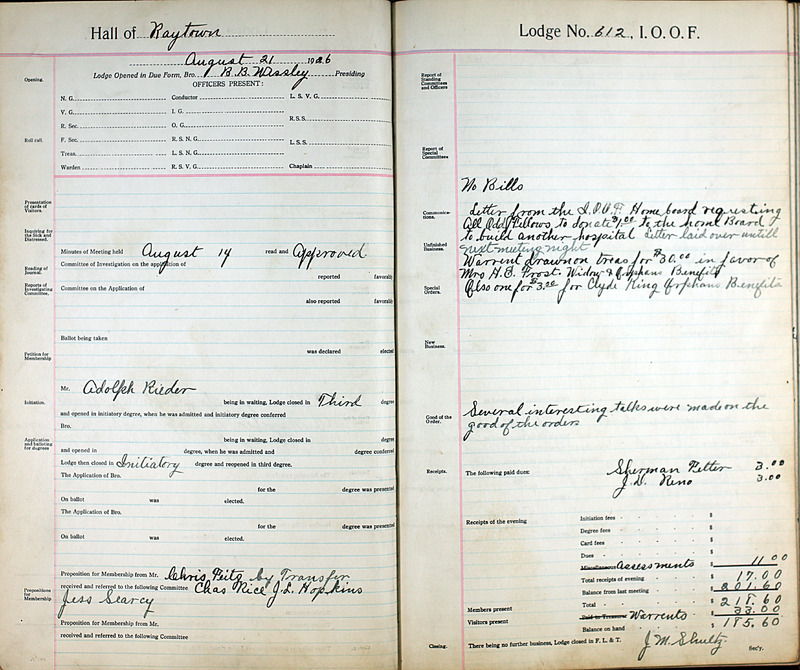 Hall of Raytown
August 21 1926
Lodge Opened in Due Form, Bro. B. B. Wissley Presiding
Opening.
OFFICERS PRESENT:
N. G. Conductor L. S. V. G.
V. G. I. G.
R. S. S.
R. Sec. O. G.
Roll call.
F. Sec. R. S. N. G.
L. S. S.
Treas. L. S. N. G.
Warden R. S. V. G. Chaplain
Presentation of cards of Visitors.
Inquiring for the Sick and Distressed.
Minutes of Meeting held August 14 read and Approved
Reading of Journal.
Committee of Investigation on the application of
reported favorably
Reports of Investigating Committee.
Committee on the Application of
also reported favorably
Ballot being taken
was declared elected
Petition for Membership
Mr. Adolph Rieder
Initiation.
being in waiting, Lodge closed in Third degree
and opened in initiatory degree, when he was admitted and initiatory degree conferred
Bro.
Application and balloting for degrees
being in waiting, Lodge closed in degree
and opened in degree, when he was admitted and degree conferred
Lodge then closed in Initiatory degree and reopened in third degree.
The Application of Bro.
for the degree was presented
On ballot was elected.
The Application of Bro.
for the degree was presented
On ballot was elected.
Proposition for Membership from Mr. Chris Feitz by Transfer
Propositions for Membership
received and referred to the following Committee Chas Rice J. L. Hopkins
Jess Searcy
Proposition for Membership from Mr.
received and referred to the following Committee
Lodge No. 612, I. O. O. F.
Report of Standing Committees and Officers
Report of Special Committees
No Bills
Communications.
Letter from the I.O.O.F. Home board requesting
All Odd Fellows to donate $1.00 to the home Board
to build another hospital Letter laid over untill
Unfinished Business.
next meeting night
Warrent drawn on treas for $30.00 in favor of
Mrs H. E. Frost. Widow & Orphans Benefits
Special Orders.
Also one for $3.00 for Clyde King Orphans Benefits
New Business.
Good of the Order.
Several interesting talks were made on the
good of the orders
Receipts.
The following paid dues: Sherman Fetter 3.00
J. D. Reno 3.00
Receipts of the evening
Initiation fees $
Degree fees $
Card fees $
Dues $
Miscellaneous Assessments $ 11 00
Total receipts of evening $ 17.00
Balance from last meeting $ 201.60
Total $ 218.60
Members present
Paid to Treasurer Warrents $ 33.00
Visitors present
Balance on hand $ 185.60
Closing.
There being no further business, Lodge closed in F. L. & T. J. M. Shultz Sec'y.